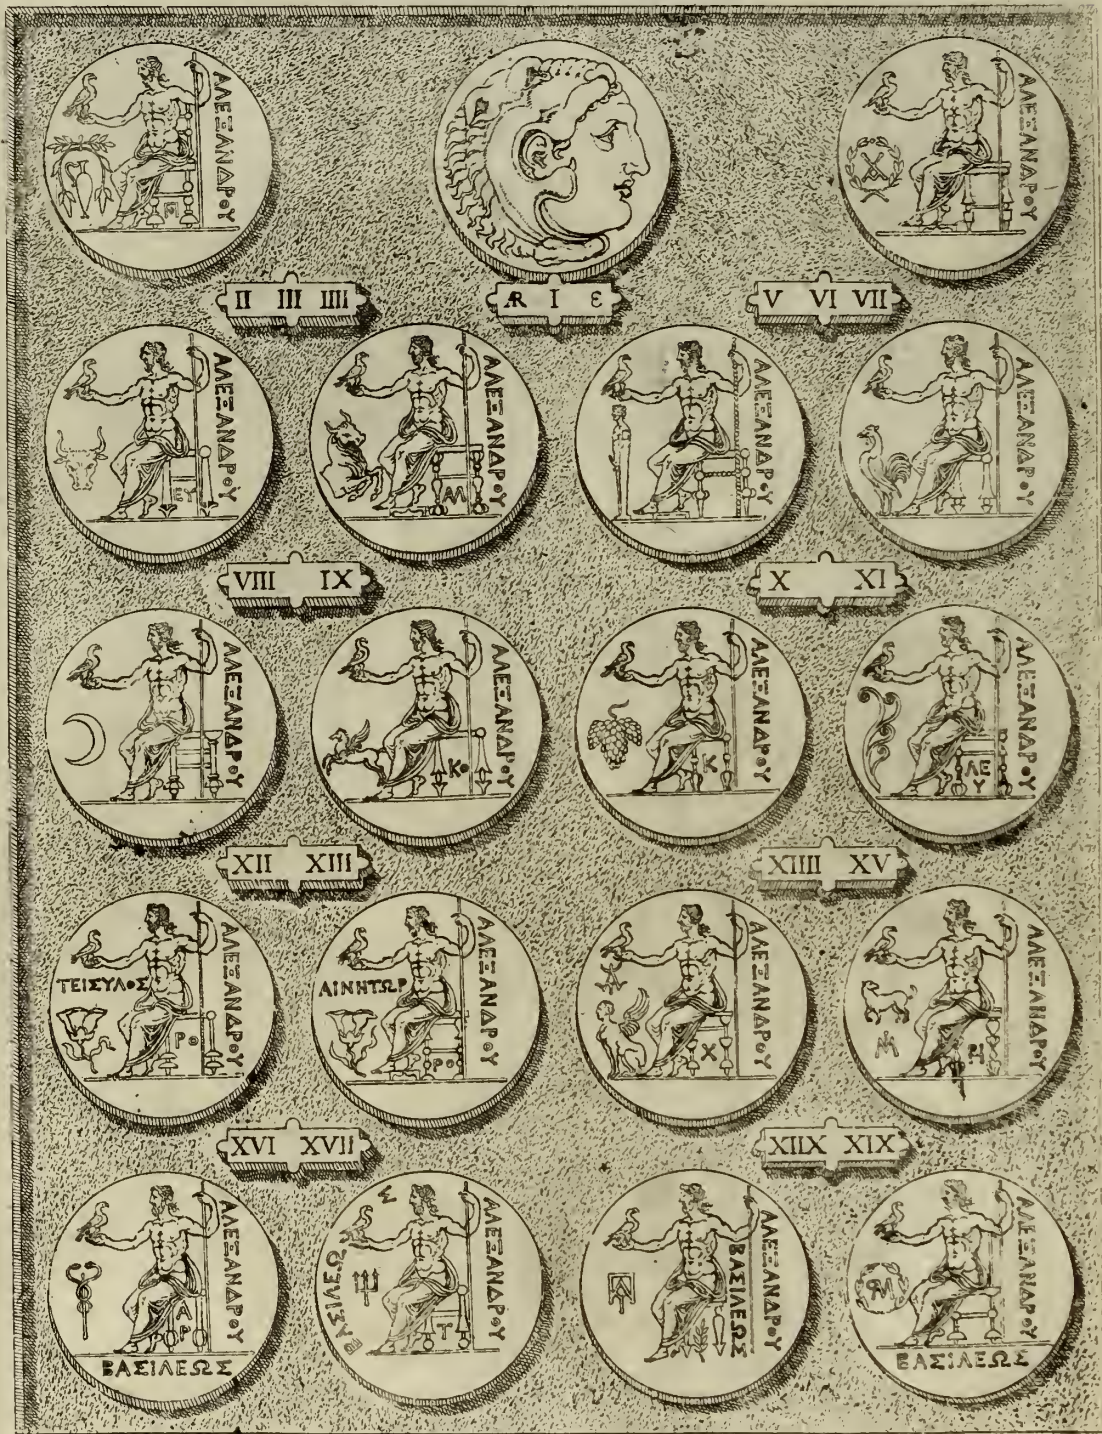 ΑΛΕΞΑΝΔΡΟΥ
ΑΛΕΞΑΝΔΡΟΥ
II III IIII
ÆR I Є
V VI VII
ΑΛΕΞΑΝΔΡΟΥ
ΕΥ
ΑΛΕΞΑΝΔΡΟΥ
ΑΛ
ΑΛΕΞΑΝΔΡΟΥ
ΑΛΕΞΑΝΔΡΟΥ
VIII IX
X XI
ΑΛΕΞΑΝΔΡΟΥ
ΑΛΕΞΑΝΔΡΟΥ
ΚΟ
ΑΛΕΞΑΝΔΡΟΥ
Κ
ΑΛΕΞΑΝΔΡΟΥ
ΛΕ
Υ
XII XIII
XIIII XV
ΑΛΕΞΑΝΔΡΟΥ
ΤΕΙΣΥΛΟΣ
ΡΟ
ΑΛΕΞΑΝΔΡΟΥ
ΑΙΝΗΤΩΡ
ΡΟ
ΑΛΕΞΑΝΔΡΟΥ
Χ
ΑΛΕΞΑΝΔΡΟΥ
XVI XVII
XIIX XIX
ΑΛΕΞΑΝΔΡΟΥ
Α
Ρ
ΒΑΣΙΛΕΩΣ
ΑΛΕΞΑΝΔΡΟΥ
ΒΑΣΙΛΕΩΣ
Τ
ΑΛΕΞΑΝΔΡΟΥ
ΒΑΣΙΛΕΩΣ
ΑΛΕΞΑΝΔΡΟΥ
ΒΑΣΙΛΕΩΣ